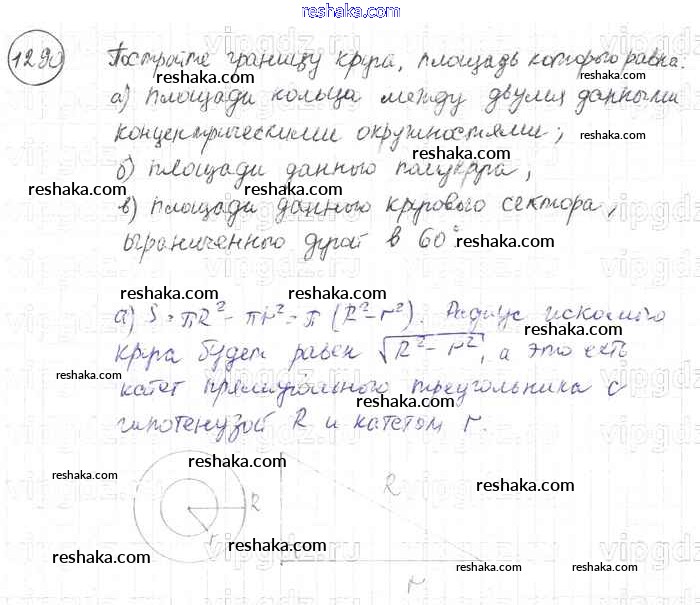 reshaka.com
1290 Постройте границу круга, площадь которого равна:
reshaka.com reshaka.com
а) площади кольца между двумя данными
reshaka.com
концентрическими окружностями;
reshaka.com
б) площади данного полукруга;
reshaka.com reshaka.com
в) площади данного кругового сектора,
reshaka.com
ограниченного дугой в 60°.
reshaka.com
reshaka.com reshaka.com
а) S = πR² - πr² = π (R² - r²). Радиус искомого
reshaka.com
круга будет равен √R² - r², а это есть
reshaka.com
катет прямоугольного треугольника с
reshaka.com
гипотенузой R и катетом r.
reshaka.com
reshaka.com reshaka.com
R R
r
reshaka.com
reshaka.com reshaka.com
r